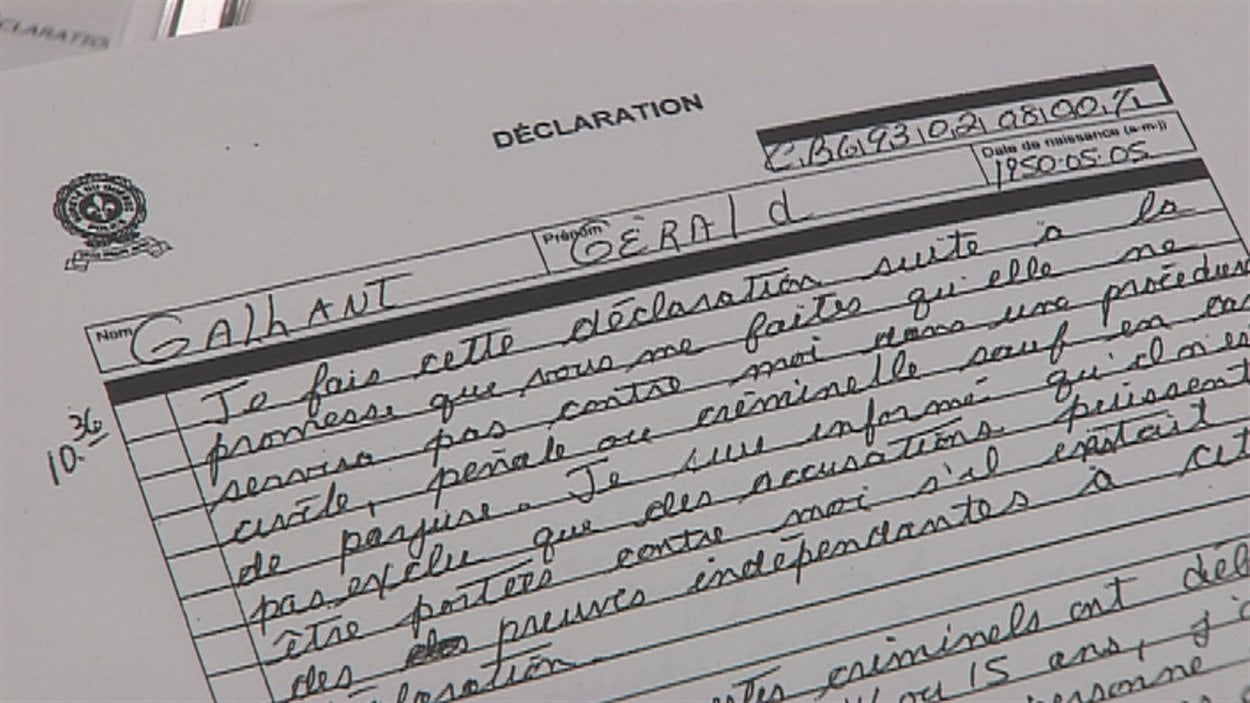 CLARATION
DÉCLARATION
Date de naissance (a-m-j)
1950-05-05
Nom GALLANT Prénom GÉRALd
10.36
Je fais cette déclaration suite à la
promesse que vous me faites qu'elle ne
servira pas contre moi dans une procédure
civile, pénale ou criminelle sauf en cas
de parjure. Je suis informé qu'il n'es
pas exclu que des accusations puissent
être portées contre moi s'il existait
des preuves indépendantes à cet
déclaration
criminels ont déb
ou 15 ans, j'
personne